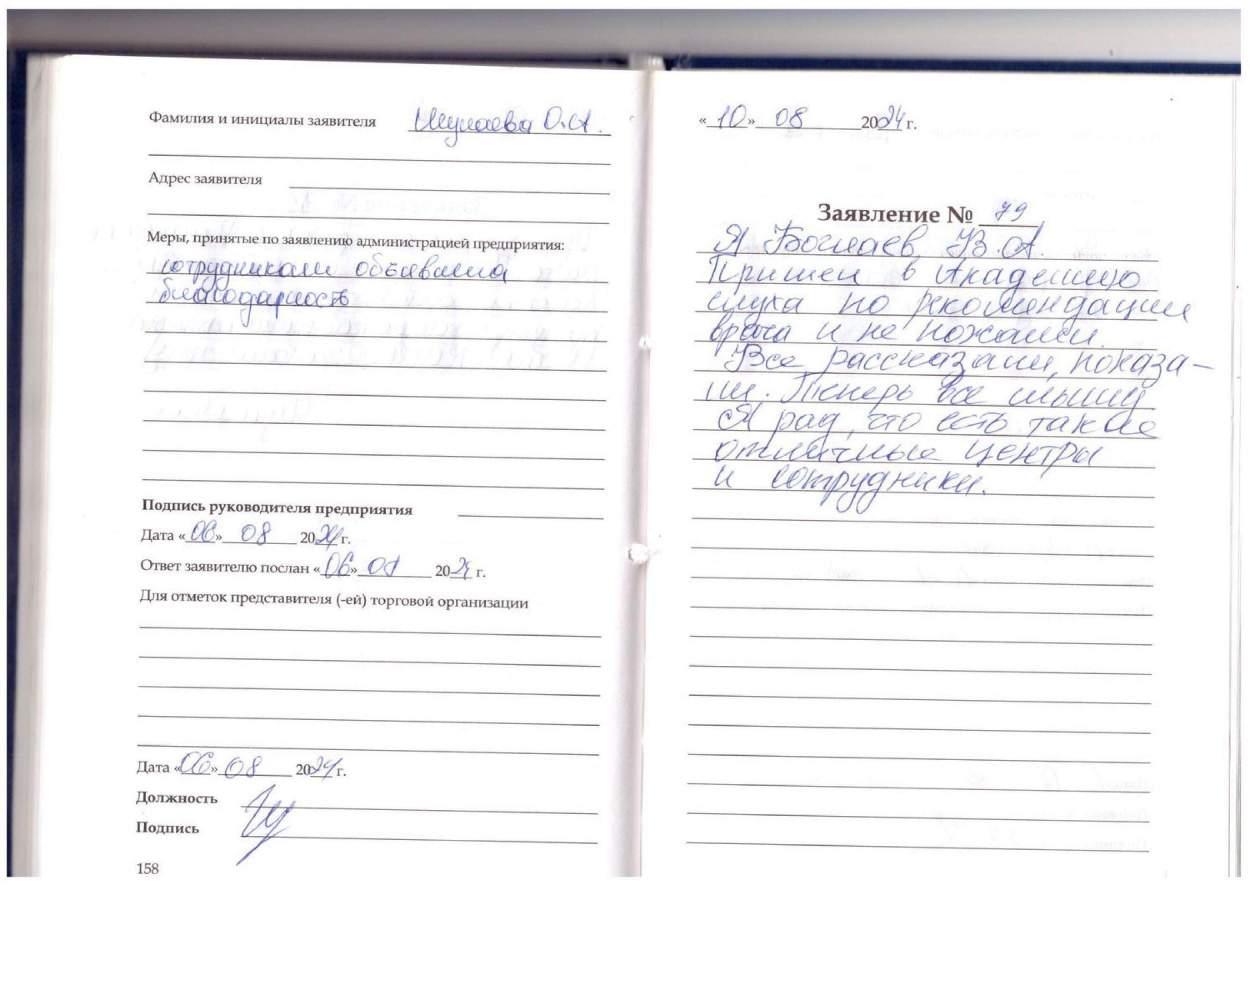 Фамилия и инициалы заявителя Шупаева О.А.
Адрес заявителя
Меры, принятые по заявлению администрацией предприятия:
сотрудникам объявлена
благодарность
Подпись руководителя предприятия
Дата «06» 08 2024 г.
Ответ заявителю послан «06» 08 2024 г.
Для отметок представителя (-ей) торговой организации
Дата «06» 08 2024 г.
Должность
Подпись
158
«10» 08 2024 г.
Заявление № 79
Я Богпаев В.А.
Пришел в Академию
слуха по рекомендации
врача и не пожалел.
Все рассказали, показа-
ли. Теперь все слышу
Я рад, что есть такие
отличные центры
и сотрудники.